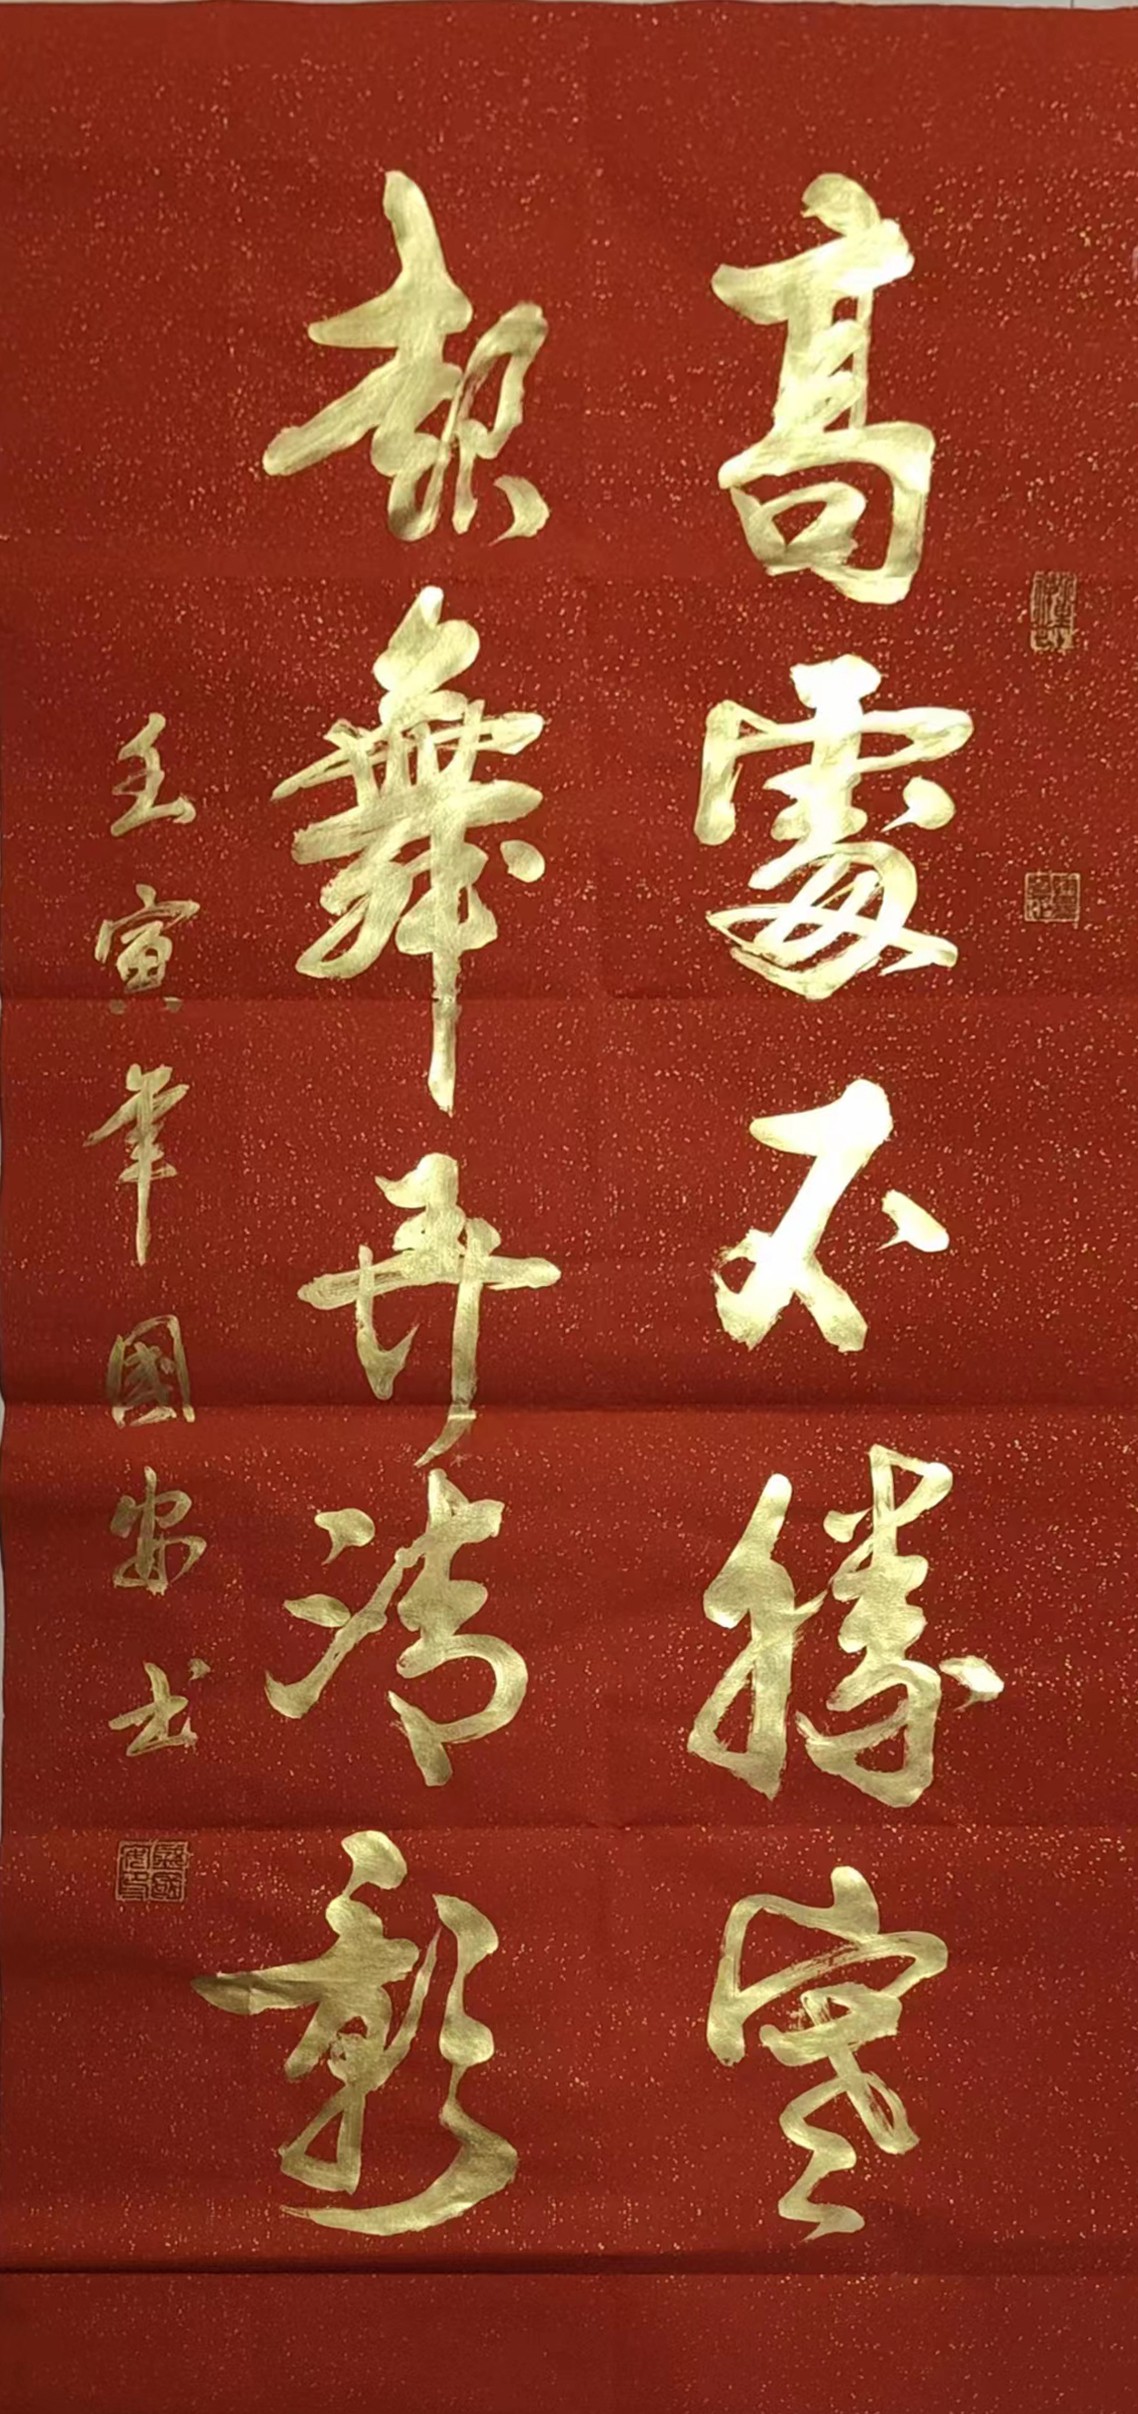 高處不勝寒
起舞弄清影
壬寅年國安书